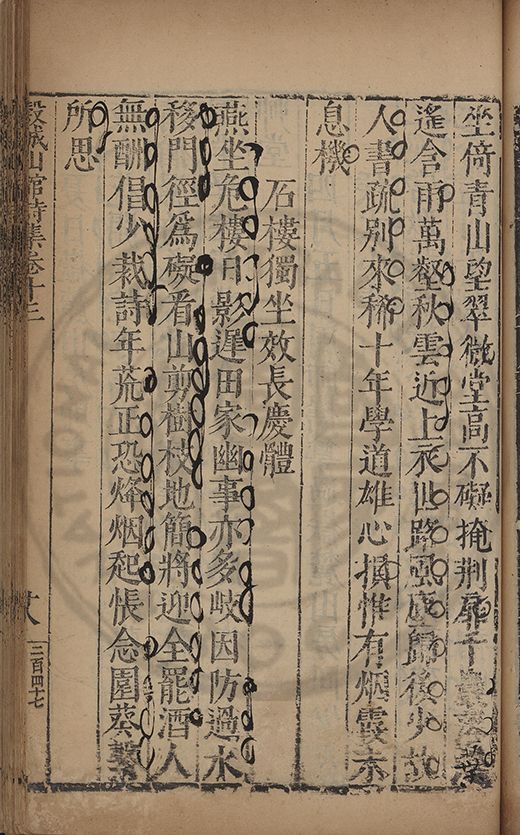 坐倚青山望翠微堂高不礙掩荆扉千巖葉
遙含雨萬壑秋雲近上衣世路風塵歸後少故
人書疏別來稀十年學道雄心損惟有烟霞未
息機
石樓獨坐效長慶體
燕坐危樓日影遲田家幽事亦多岐因防過水
移門徑爲礙看山剪樹枝地簡將迎全罷酒人
無酬倡少裁詩年荒正恐烽烟起悵念園葵繫
所思
穀城山館詩集卷十三
三百四十七